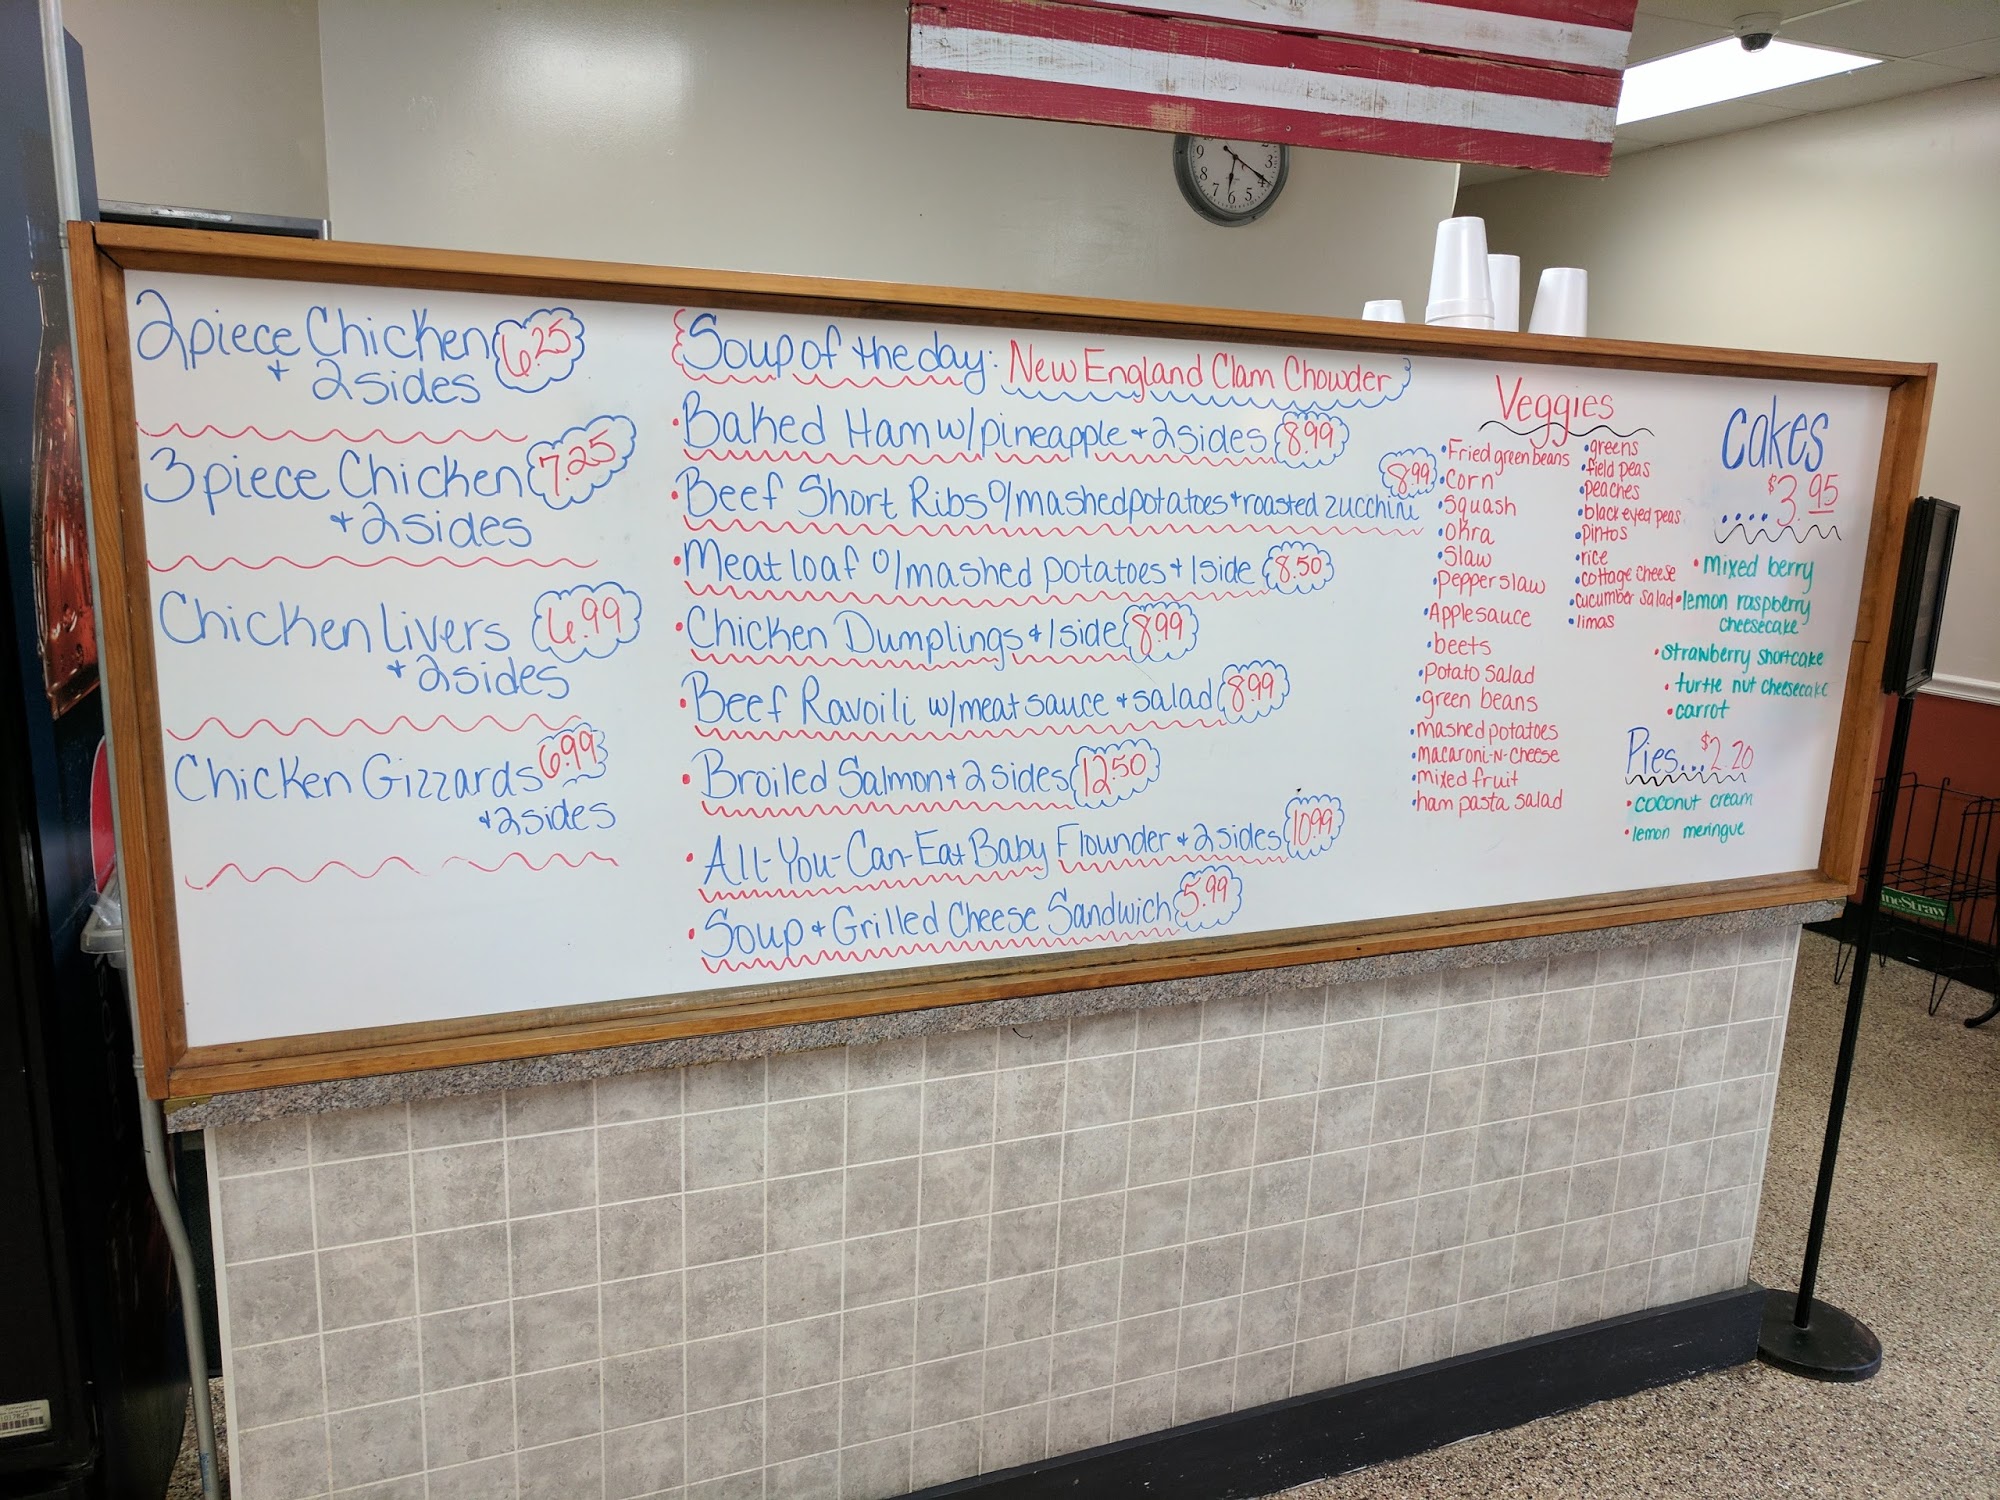 2 piece Chicken 6.25
+ 2 sides
3 piece Chicken 7.25
+ 2 sides
Chicken Livers 6.99
+ 2 sides
Chicken Gizzards 6.99
+ 2 sides
Soup of the day: New England Clam Chowder
• Baked Ham w/ pineapple + 2 sides 8.99
• Beef Short Ribs o/ mashed potatoes + roasted zucchini 8.99
• Meat loaf o/ mashed potatoes + 1 side 8.50
• Chicken Dumplings + 1 side 8.99
• Beef Ravoili w/ meat sauce + salad 8.99
• Broiled Salmon + 2 sides 12.50
• All-You-Can-Eat Baby Flounder + 2 sides 10.99
• Soup + Grilled Cheese Sandwich 5.99
Veggies
• Fried green beans
• Corn
• Squash
• Okra
• Slaw
• Pepper slaw
• Applesauce
• beets
• Potato Salad
• green beans
• mashed potatoes
• macaroni-N-cheese
• mixed fruit
• ham pasta salad
• greens
• field peas
• peaches
• black eyed peas
• pintos
• rice
• cottage cheese
• cucumber salad
• limas
Cakes
.... $3.95
• mixed berry
• lemon raspberry
cheesecake
• strawberry shortcake
• turtle nut cheesecake
• carrot
Pies... $2.20
• coconut cream
• lemon meringue
9 3
8 4
7 6 5
ineStraw